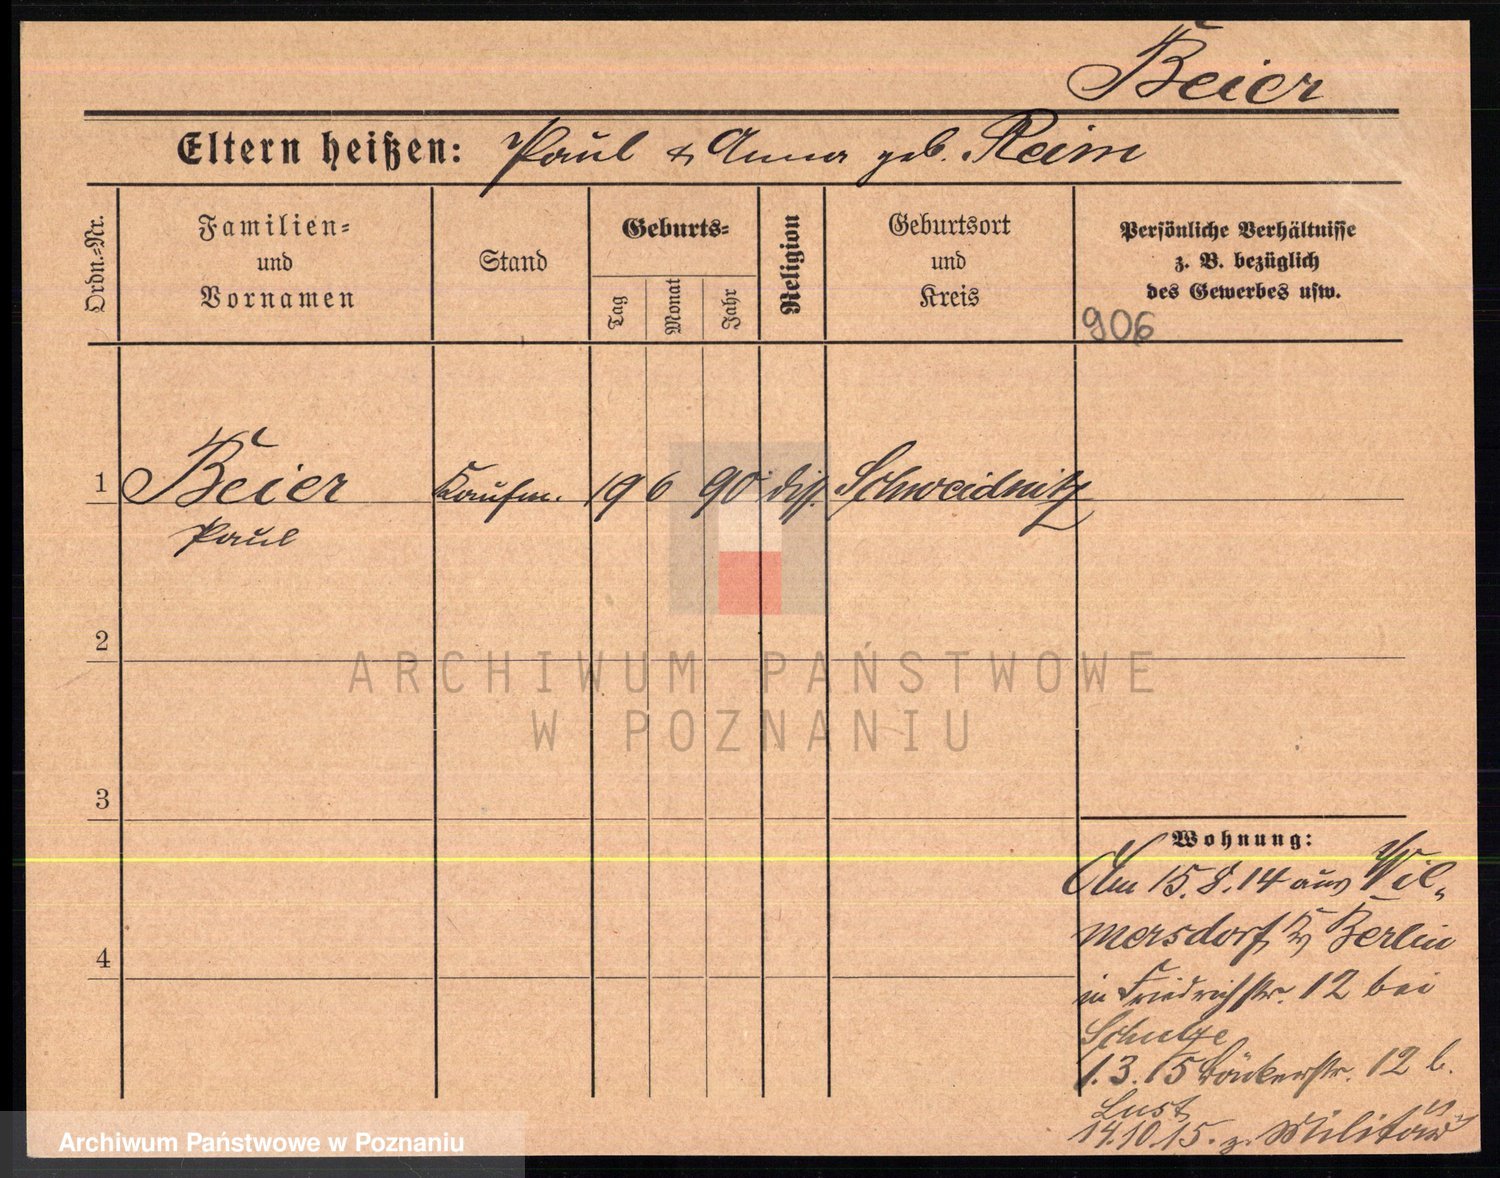 Beier
Eltern heißen: Paul & Anna geb. Reim
Ordn.-Nr.
Familien-
und
Vornamen
Stand
Geburts-
Tag
Monat
Jahr
Religion
Geburtsort
und
Kreis
Persönliche Verhältnisse
z. B. bezüglich
des Gewerbes usw.
906
1 Beier Kaufm. 19 6 90 diss. Schweidnitz
Paul
2
3
4
Wohnung:
Am 15.8.14 aus Wil-
mersdorf, Kr. Berlin
in Friedrichstr. 12 bei
Schulze
1.3.15 Bäckerstr. 12 b.
Lust
14.10.15. z. Militär
ARCHIWUM PAŃSTWOWE
W POZNANIU
Archiwum Państwowe w Poznaniu